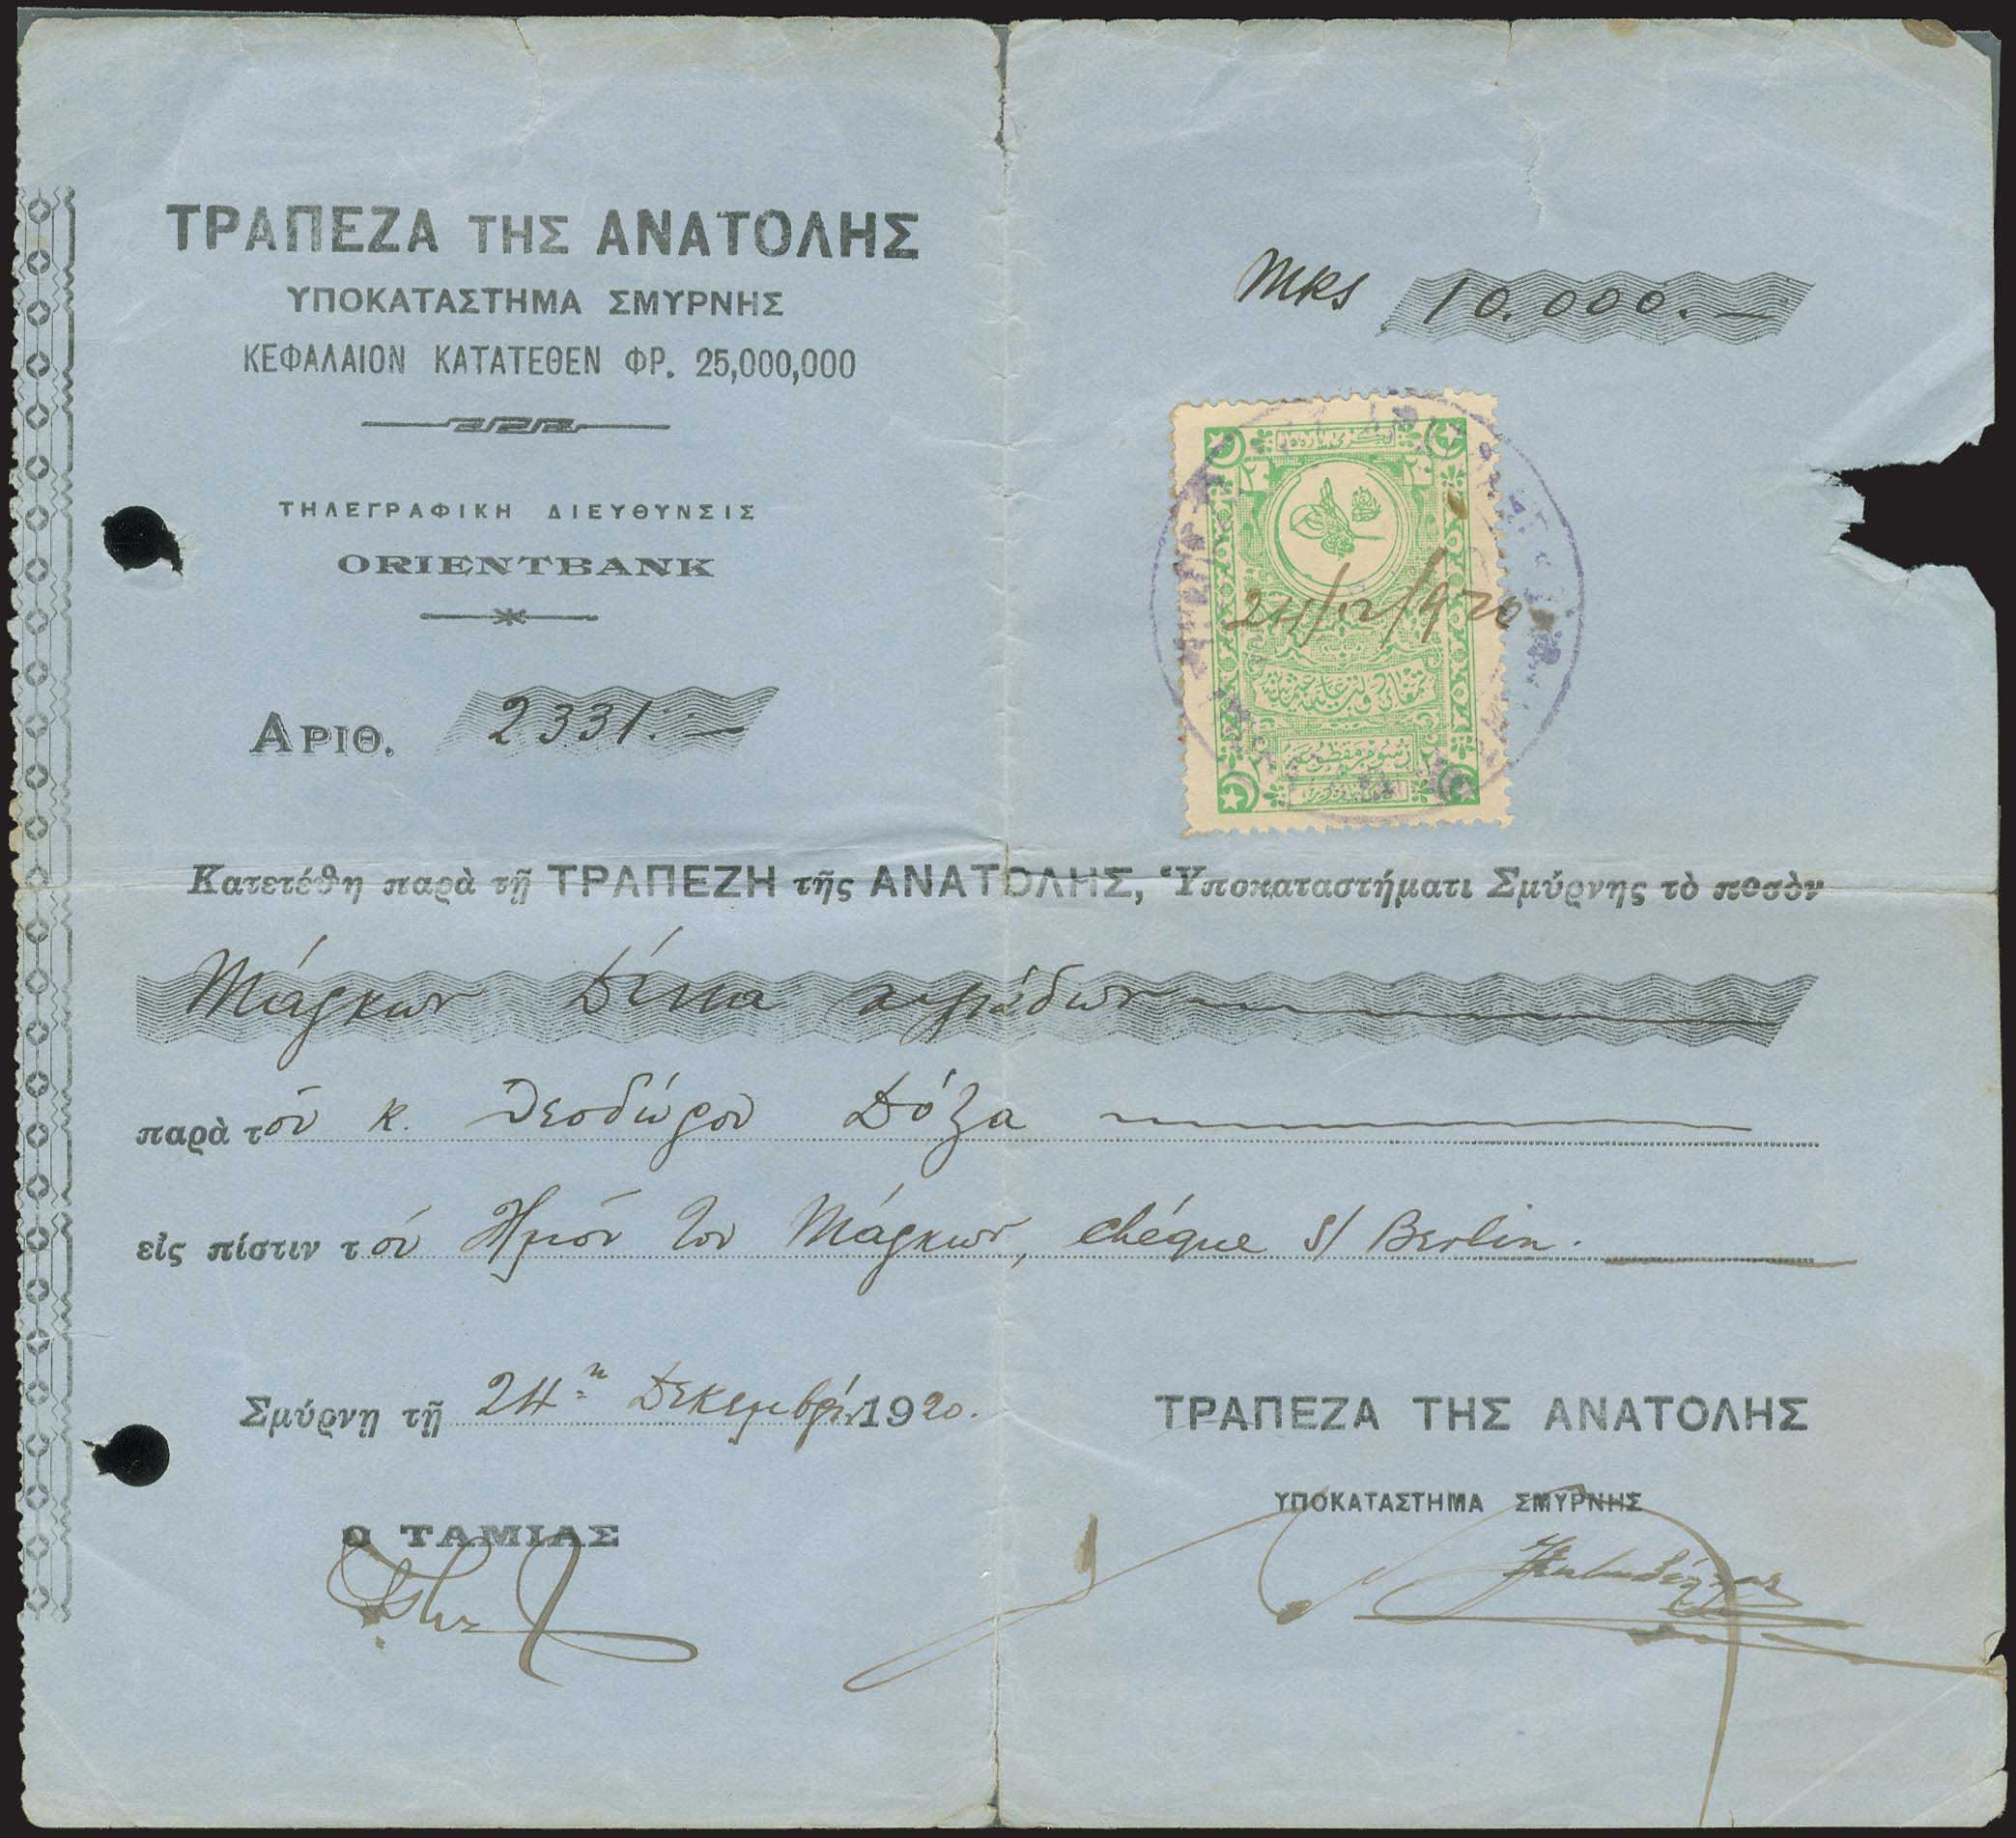 ΤΡΑΠΕΖΑ ΤΗΣ ΑΝΑΤΟΛΗΣ
ΥΠΟΚΑΤΑΣΤΗΜΑ ΣΜΥΡΝΗΣ
ΚΕΦΑΛΑΙΟΝ ΚΑΤΑΤΕΘΕΝ ΦΡ. 25,000,000
ΤΗΛΕΓΡΑΦΙΚΗ ΔΙΕΥΘΥΝΣΙΣ
ORIENTBANK
ΑΡΙΘ. 2331.—
Mks 10.000.—
24/12/920
Κατετέθη παρὰ τῇ ΤΡΑΠΕΖΗ τῆς ΑΝΑΤΟΛΗΣ, Ὑποκαταστήματι Σμύρνης τὸ ποσὸν
Μάρκων Δέκα χιλιάδων
παρὰ τοῦ κ. Θεοδώρου Δόξα
εἰς πίστιν τοῦ Ημῶν του Μάρκων, chéque s/ Berlin.
Σμύρνῃ τῇ 24η Δεκεμβρίου 1920.
Ο ΤΑΜΙΑΣ
ΤΡΑΠΕΖΑ ΤΗΣ ΑΝΑΤΟΛΗΣ
ΥΠΟΚΑΤΑΣΤΗΜΑ ΣΜΥΡΝΗΣ